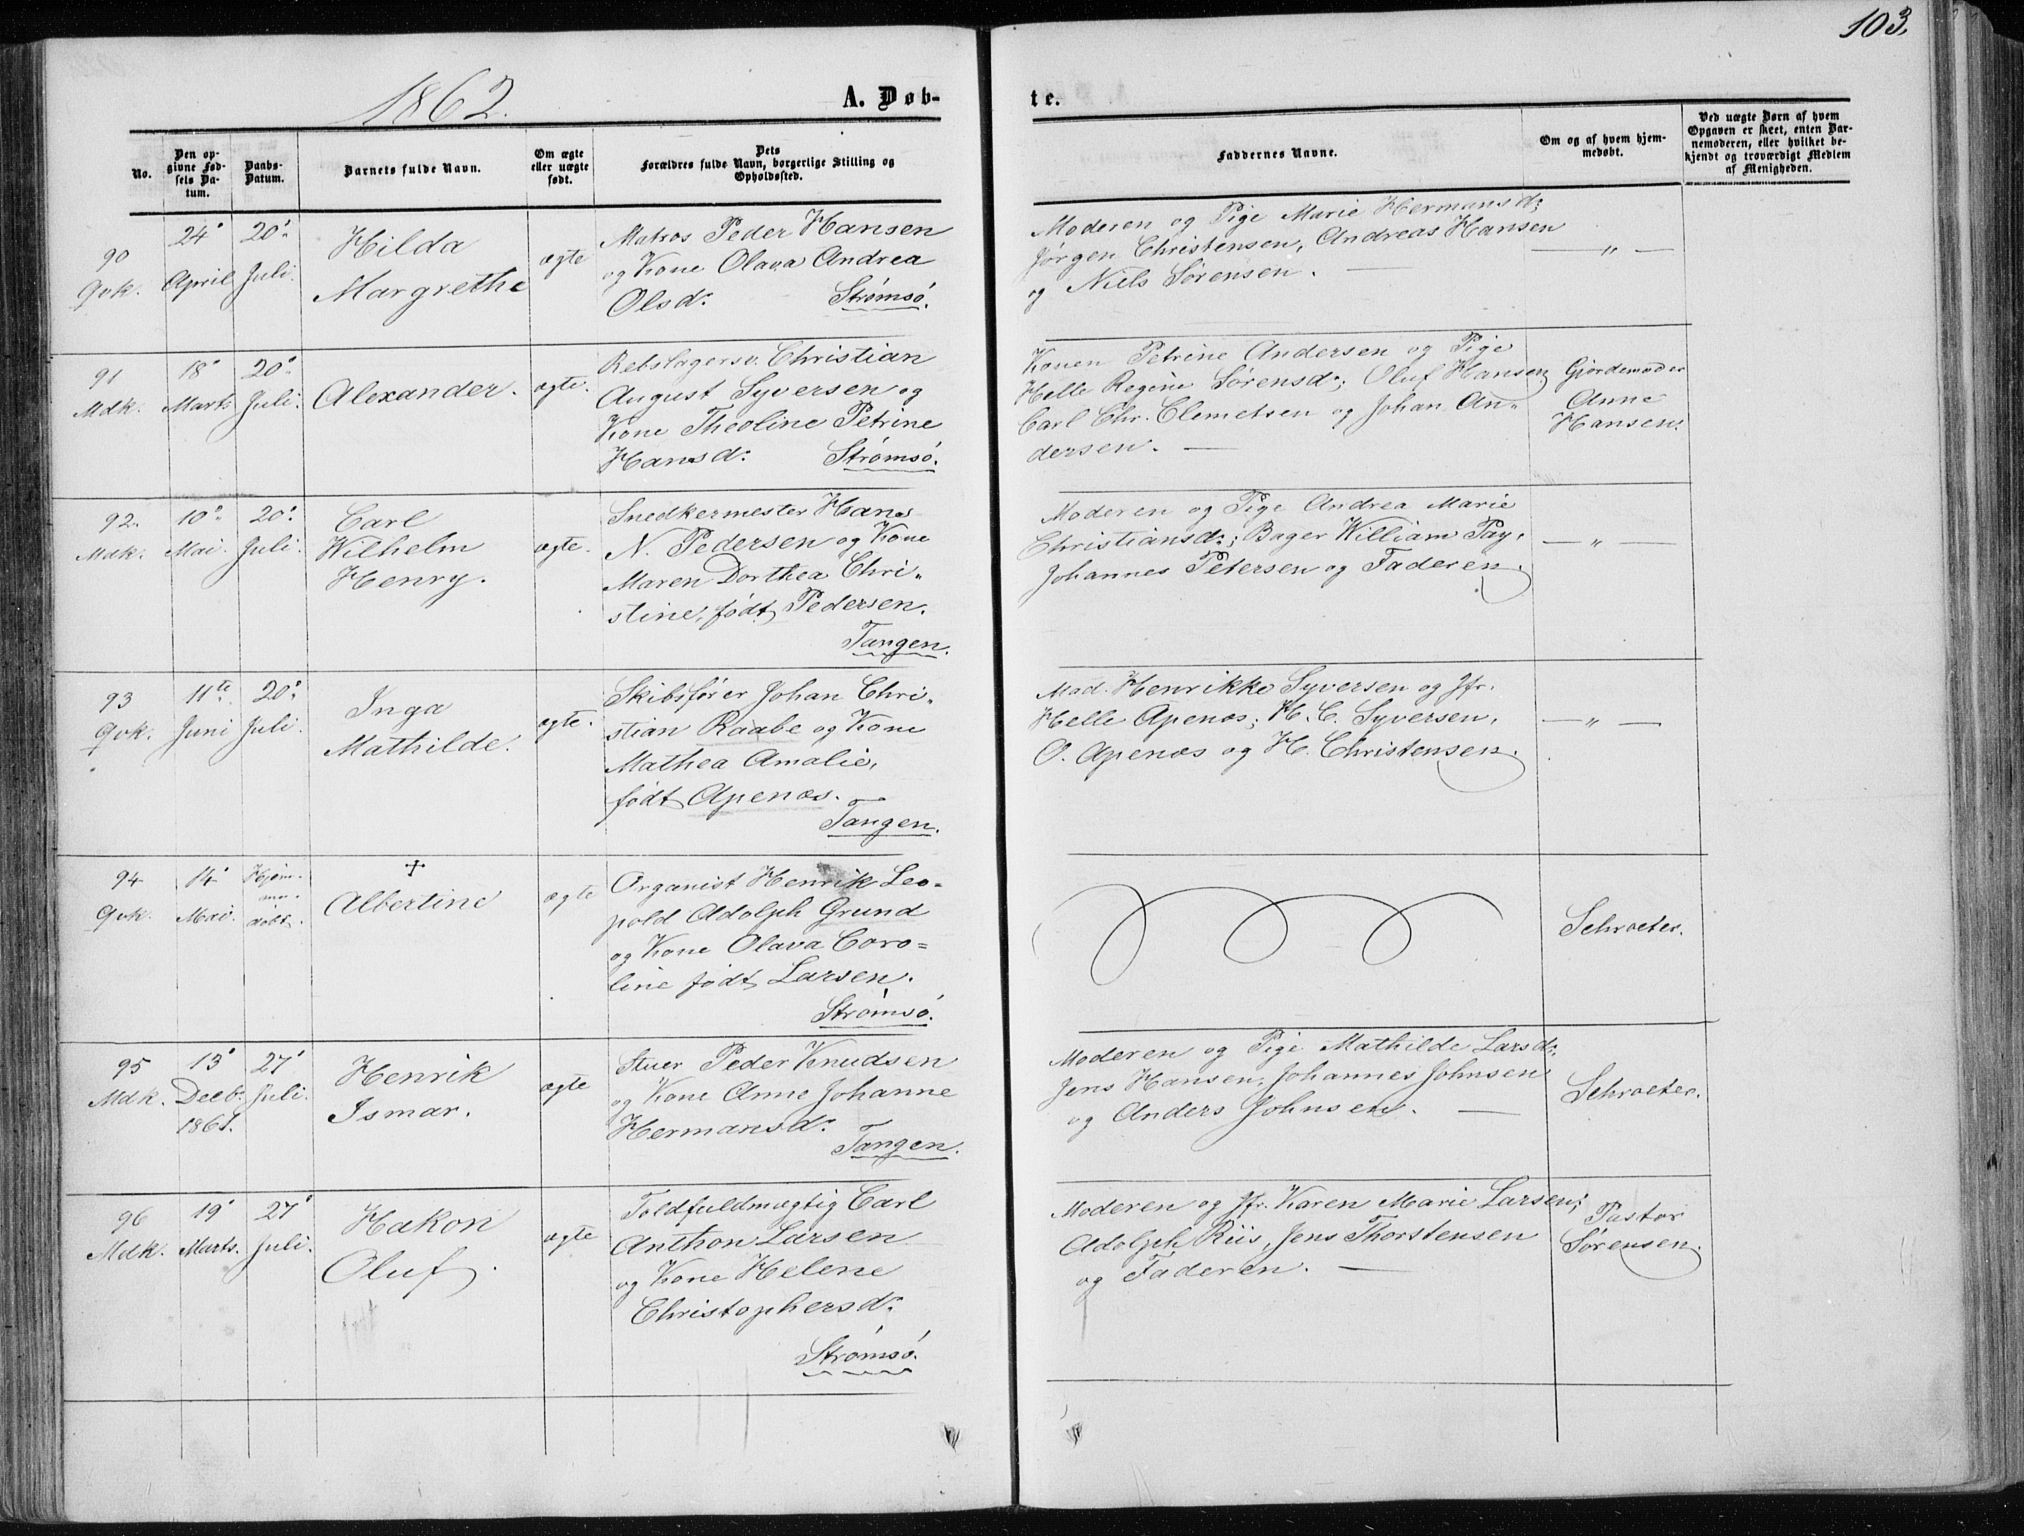 103.
1862.
A. Døb-
te.
No.
Den op-
givne Fød-
sels Da-
tum.
Daabs-
Datum.
Barnets fulde Navn.
Om ægte
eller uægte
født.
Dets
Forældres fulde Navn, borgerlige Stilling og
Opholdssted.
Faddernes Navne.
Om og af hvem hjem-
medøbt.
Ved uægte Børn af hvem
Opgaven er skeet, enten Bar-
nemoderen, eller hvilket be-
kjendt og troværdigt Medlem
af Menigheden.
90
Qvk.
24'
April
20'
Juli.
Hilda
Margrethe
ægte
Matros Peder Hansen
og Kone Olava Andrea
Olsd:
Strømsö.
Moderen og Pige Marie Hermansd;
Jørgen Christensen, Andreas Hansen
og Niels Sørensen. —
— " —
91
Mdk.
18'
Marts
20'
Juli.
Alexander.
ægte.
Rebslagersv. Christian
August Syversen og
Kone Theoline Petrine
Hansd:
Strømsö.
Konen Petrine Andersen og Pige
Helle Regine Sørensd:; Oluf Hansen
Carl Chr. Clemetsen og Johan An-
dersen. —
Gjordemoder
Anne
Hansen.
92.
Mdk.
10'
Mai.
20'
Juli.
Carl
Wilhelm
Henry.
ægte.
Snedkermester Hans
N. Pedersen og Kone
Maren Dorthea Chri-
stine, født Pedersen.
Tangen.
Moderen og Pige Andrea Marie
Christiansd:; Bager William Pay,
Johannes Petersen og Faderen.
— " —
93
Qvk.
11te
Juni
20'
Juli.
Inga
Mathilde.
ægte.
Skibsfører Johan Chri-
stian Raabe og Kone
Mathea Amalie,
født Apenæs.
Tangen.
Mad. Henrikke Syversen og Jfr.
Helle Apenæs; H. C. Syversen,
O. Apenæs og H. Christensen.
— " —
94
Qvk.
14'
Mai.
Hjem-
me-
døbt.
+
Albertine
ægte
Organist Henrik Leo-
pold Adolph Grund
og Kone Olava Caro-
line født Larsen.
Strømsö.
Schroeter.
95
Mdk.
13'
Decb.
1861.
27'
Juli.
Henrik
Ismar.
ægte
Stuer Peder Knudsen
og Kone Anne Johanne
Hermansd:
Tangen.
Moderen og Pige Mathilde Larsd:,
Jens Hansen, Johannes Johnsen
og Anders Johnsen. —
Schroeter.
96
Mdk.
19'
Marts.
27'
Juli.
Hakon
Oluf.
ægte
Toldfuldmægtig Carl
Anthon Larsen
og Kone Helene
Christophersd:
Strømsö.
Moderen og Jfr. Karen Marie Larsen;
Adolph Riis, Jens Thorstensen
og Faderen. —
Pastor
Sørensen.